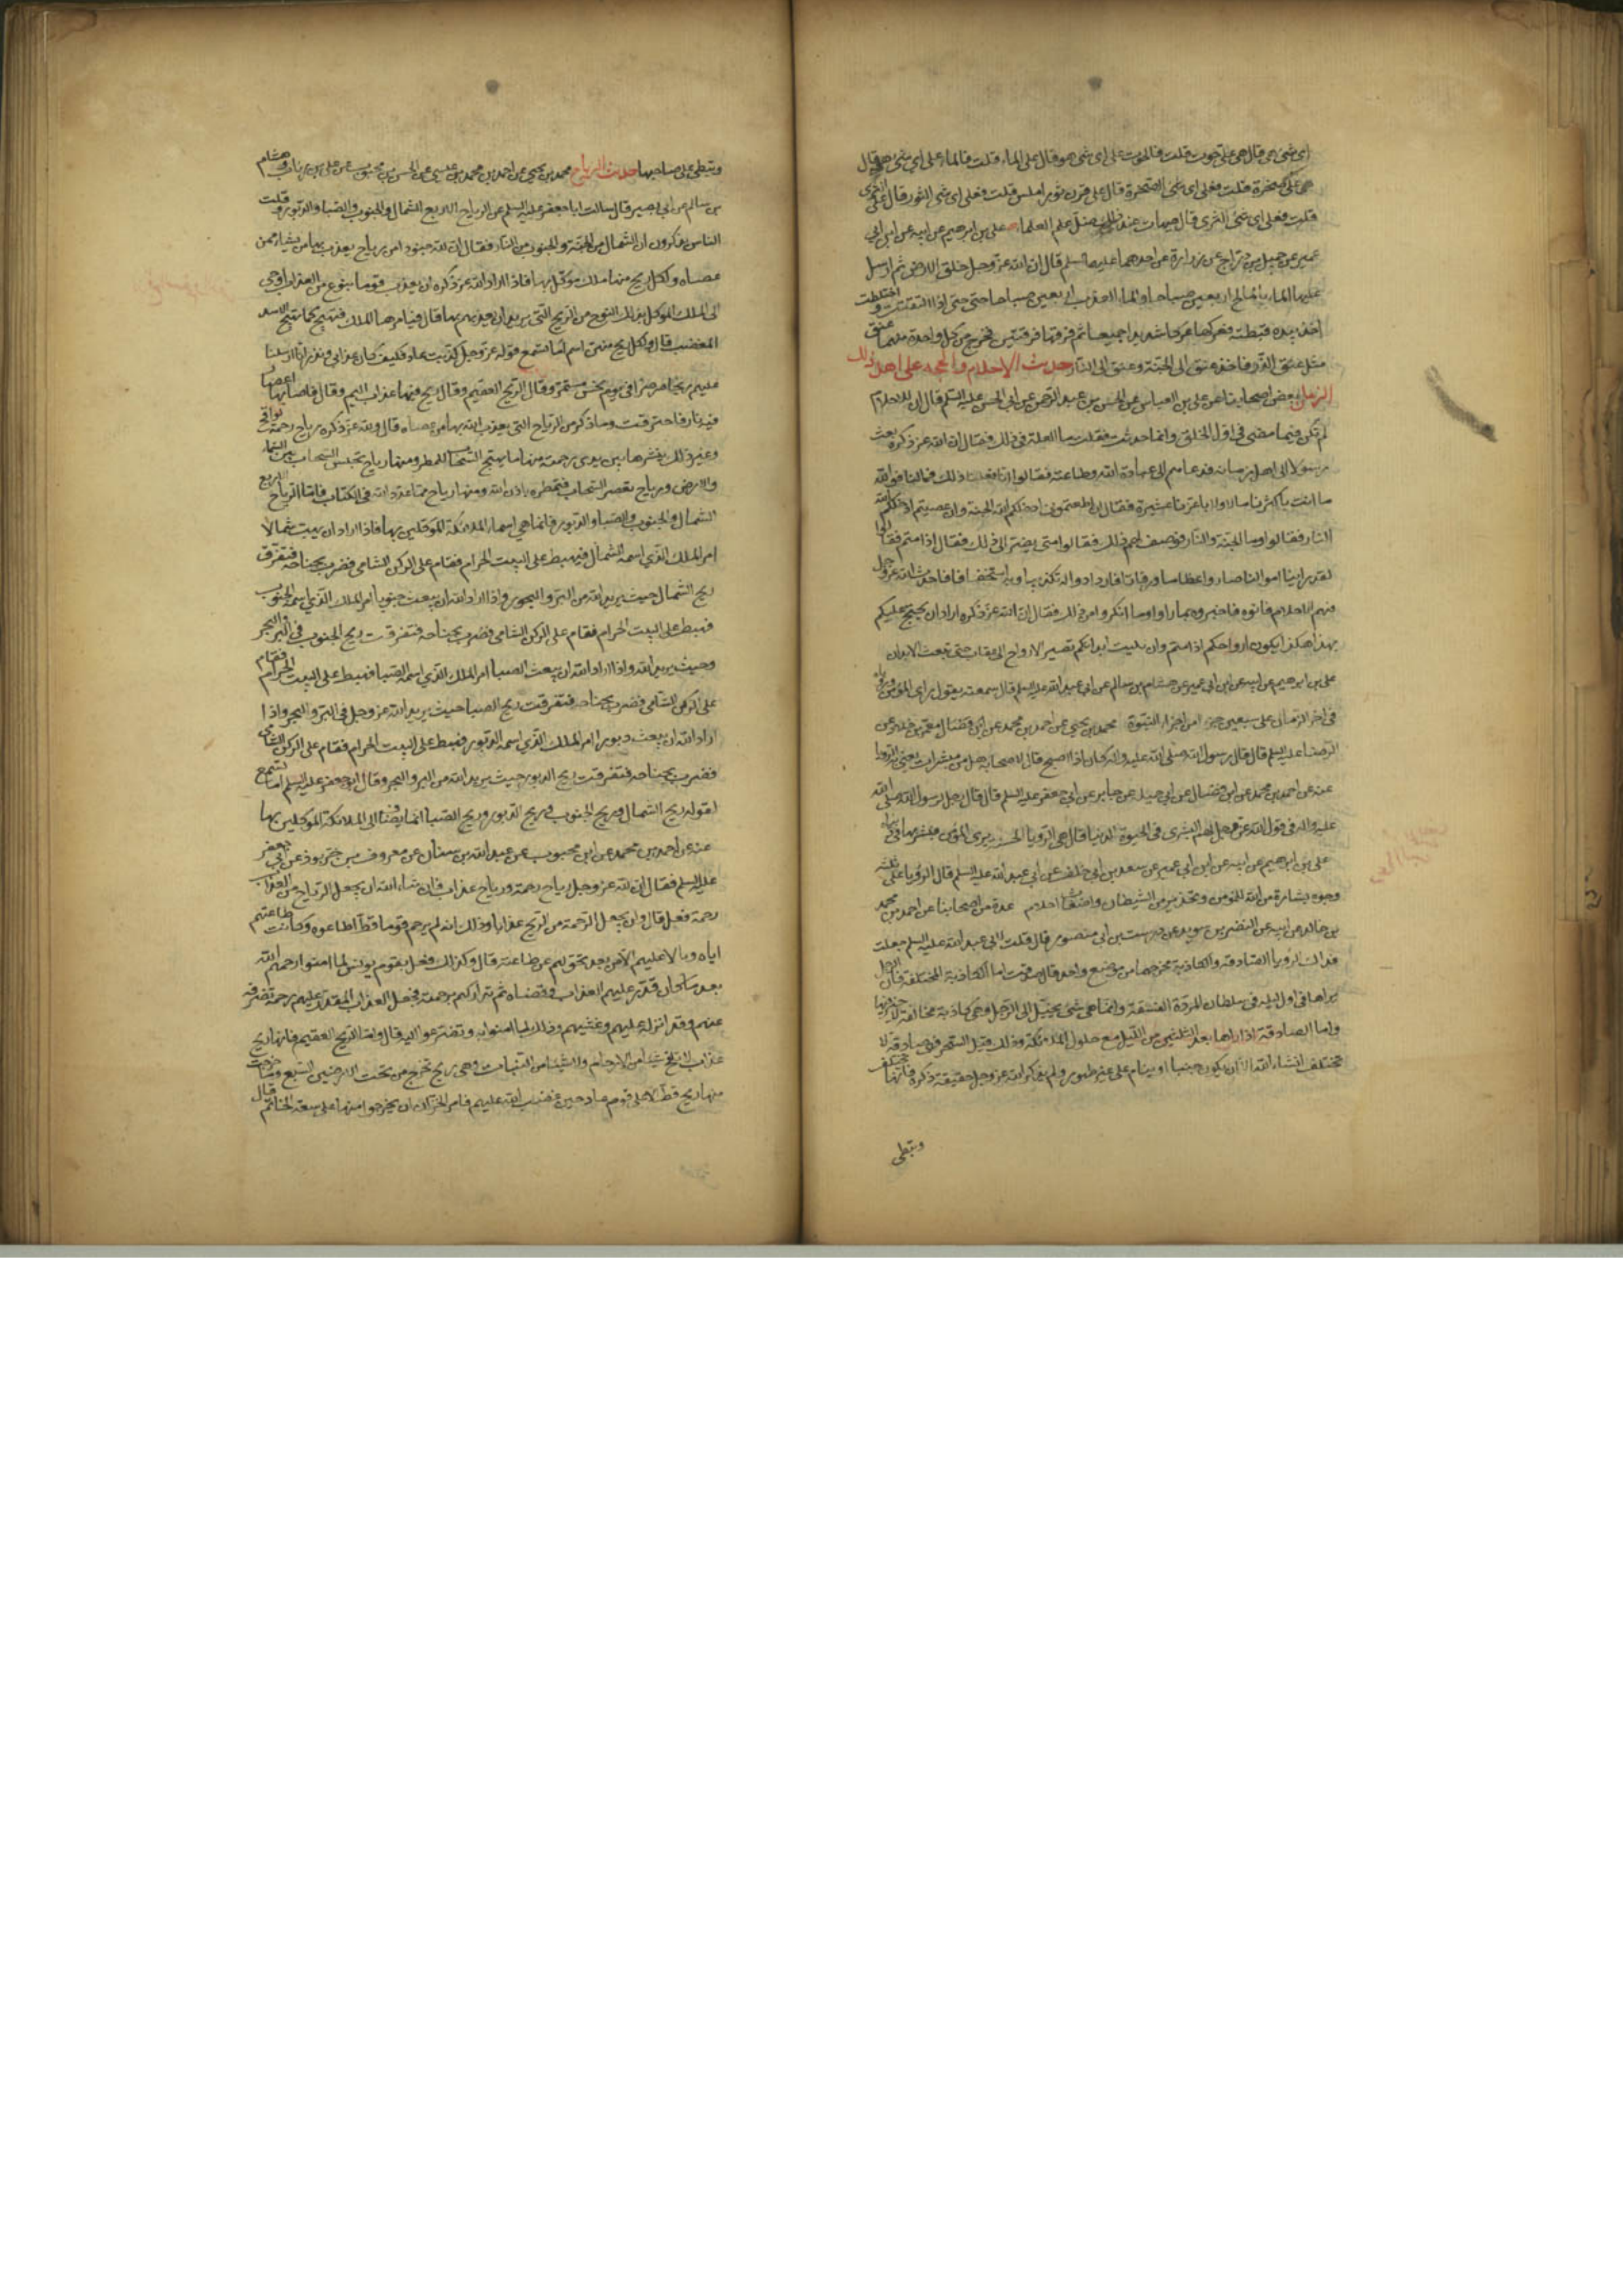 اى شئ هى قال هى على حوت قلت فالحوت على اى شئ هو قال على الماء قلت فالماء على اى شئ هو قال
على صخرة قلت فعلى اى شئ الصخرة قال على قرن ثور املس قلت فعلى اى شئ الثور قال على الثرى
قلت فعلى اى شئ الثرى قال هيهات عند ذلك ضل علم العلماء على بن ابرهيم عن ابيه عن ابن ابي
عمير عن جميل بن دراج عن زرارة عن احدهما عليهما السلم قال ان الله عز وجل خلق الارض ثم ارسل
عليها الماء المالح اربعين صباحا والماء العذب اربعين صباحا حتى اذا التقت واختلطت
اخذ بيده قبضة فعركها عركا شديدا جميعا ثم فرقها فرقتين فخرج من كل واحدة منهما عنق
مثل عنق الذر فاخذ عنق الى الجنة وعنق الى النار حديث الاحلام والحجة على اهل ذلك
الزمان بعض اصحابنا عن على بن العباس عن الحسن بن عبد الرحمن عن ابي الحسن عليه السلم قال ان الاحلام
لم تكن فيما مضى فى اول الخلق وانما حدثت فقلت وما العلة فى ذلك فقال ان الله عز ذكره بعث
رسولا الى اهل زمانه فدعاهم الى عبادة الله وطاعته فقالوا ان فعلنا ذلك فما لنا فوالله
ما انت باكثرنا مالا ولا باعزنا عشيرة فقال ان اطعتمونى ادخلكم الله الجنة وان عصيتم ادخلكم الله
النار فقالوا وما الجنة والنار فوصف لهم ذلك فقالوا متى نصير الى ذلك فقال اذا متم فقالوا
لقد راينا امواتنا صاروا عظاما ورفاتا فازدادوا له تكذيبا وبه استخفافا فاحدث الله عز وجل
فيهم الاحلام فاتوه فاخبروه بما راوا وما انكروا من ذلك فقال ان الله عز ذكره اراد ان يحتج عليكم
بهذا هكذا يكون ارواحكم اذا متم وان بليت ابدانكم تصير الارواح الى عقاب حتى تبعث الابدان
على بن ابرهيم عن ابيه عن ابن ابى عمير عن هشام بن سالم عن ابى عبد الله عليه السلم قال سمعته يقول راى المؤمن ورؤياه
فى اخر الزمان على سبعين جزءا من اجزاء النبوة محمد بن يحيى عن احمد بن محمد عن ابن فضال عن معمر بن خلاد عن
الرضا عليه السلم قال قال رسول الله صلى الله عليه واله كان اذا اصبح قال لاصحابه هل من مبشرات يعنى به الرؤيا
عنه عن احمد بن محمد عن ابن فضال عن ابي جميلة عن جابر عن ابي جعفر عليه السلم قال قال رجل لرسول الله صلى الله
عليه واله فى قول الله عز وجل لهم البشرى فى الحيوة الدنيا قال هى الرؤيا الحسنة يرى المؤمن فيبشر بها فى دنياه
على بن ابرهيم عن ابيه عن ابن ابي عمير عن سعد بن ابي خلف عن ابي عبد الله عليه السلم قال الرؤيا على ثلثة
وجوه بشارة من الله للمؤمن وتحذير من الشيطان واضغاث احلام عدة من اصحابنا عن احمد بن محمد
بن خالد عن ابيه عن النضر بن سويد عن درست بن ابي منصور قال قلت لابي عبد الله عليه السلم جعلت
فداك الرؤيا الصادقة والكاذبة مخرجهما من موضع واحد قال صدقت اما الكاذبة المختلفة فان الرجل
يراها فى اول ليله فى سلطان المردة الفسقة وانما هى شئ يخيل الى الرجل وهى كاذبة مخالفة لا خير فيها
واما الصادقة اذا راها بعد الثلثين من الليل مع حلول الملائكة وذلك قبل السحر فهى صادقة لا
تختلف انشاء الله الا ان يكون جنبا او ينام على غير طهور ولم يذكر الله عز وجل حقيقة ذكره فانها تختلف
وتبطى
وتبطى على صاحبها حديث الرياح محمد بن يحيى عن احمد بن محمد بن عيسى عن الحسن بن محبوب عن على بن رئاب وهشام
بن سالم عن ابي بصير قال سالت ابا جعفر عليه السلم عن الرياح الاربع الشمال والجنوب والصبا والدبور وقلت
الناس يذكرون ان الشمال من الجنة والجنوب من النار فقال ان لله جنودا من رياح يعذب بها من يشاء ممن
عصاه ولكل ريح منها ملك موكل بها فاذا اراد الله عز ذكره ان يعذب قوما بنوع من العذاب اوحى
الى الملك الموكل بذلك النوع من الريح التى يريد ان يعذبهم بها قال فيامرها الملك فتهيج كما يهيج الاسد
المغضب قال ولكل ريح منهن اسم اما تسمع قوله عز وجل كذبت عاد فكيف كان عذابى ونذر انا ارسلنا
عليهم ريحا صرصرا فى يوم نحس مستمر وقال الريح العقيم وقال ريح فيها عذاب اليم وقال فاصابها اعصار
فيه نار فاحترقت وما ذكر من الرياح التى يعذب الله بها من عصاه قال ولله عز ذكره رياح رحمة لواقح
وغير ذلك ينشرها بين يدى رحمته منها ما يهيج السحاب للمطر ومنها رياح تحبس السحاب بين السماء
والارض ورياح تعصر السحاب فتمطره باذن الله ومنها رياح مما عدد الله فى الكتاب فاما الرياح الاربع
الشمال والجنوب والصبا والدبور فانما هى اسماء الملائكة الموكلين بها فاذا اراد الله ان يهب شمالا
امر الملك الذى اسمه الشمال فيهبط على البيت الحرام فقام على الركن الشامى فضرب بجناحه فتفرقت
ريح الشمال حيث يريد الله من البر والبحر واذا اراد الله ان يبعث جنوبا امر الملك الذى اسمه الجنوب
فهبط على البيت الحرام فقام على الركن الشامى فضرب بجناحه فتفرقت ريح الجنوب فى البر والبحر
وحيث يريد الله واذا اراد الله ان يبعث الصبا امر الملك الذى اسمه الصبا فهبط على البيت الحرام فقام
على الركن الشامى فضرب بجناحه فتفرقت ريح الصبا حيث يريد الله عز وجل فى البر والبحر واذا
اراد الله ان يبعث دبورا امر الملك الذى اسمه الدبور فهبط على البيت الحرام فقام على الركن الشامى
فضرب بجناحه فتفرقت ريح الدبور حيث يريد الله من البر والبحر وقال ابو جعفر عليه السلم اما تسمع
لقوله ريح الشمال وريح الجنوب وريح الدبور وريح الصبا انما يضاف الى الملائكة الموكلين بها
عنه عن احمد بن محمد عن ابن محبوب عن عبد الله بن سنان عن معروف بن خربوذ عن ابي جعفر
عليه السلم فقال ان لله عز وجل رياح رحمة ورياح عذاب فان شاء الله ان يجعل الرياح من العذاب
رحمة فعل قال ولن يجعل الرحمة من الريح عذابا وذلك انه لم يرحم قوما قط اطاعوه وكانت طاعتهم
اياه وبالا عليهم الا من بعد تحولهم عن طاعته قال وكذلك فعل بقوم يونس لما امنوا رحمهم الله
بعد ما كان قدر عليهم العذاب وقضاه ثم تداركهم برحمته فجعل العذاب المقدر عليهم رحمة فصرفه
عنهم وقد انزله عليهم وغشيهم وذلك لما امنوا به وتضرعوا اليه قال واما الريح العقيم فانها ريح
عذاب لا تلقح شيئا من الارحام ولا شيئا من النبات وهى ريح تخرج من تحت الارضين السبع وما خرجت
منها ريح قط الا على قوم عاد حين غضب الله عليهم فامر الخزان ان يخرجوا منها على سعة الخاتم قال